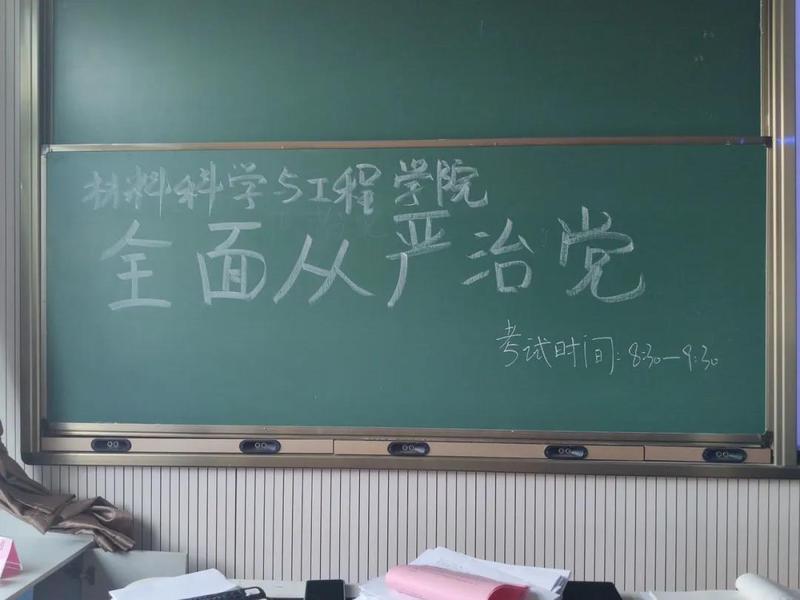 材料科学与工程学院
全面从严治党
考试时间：8:30—9:30